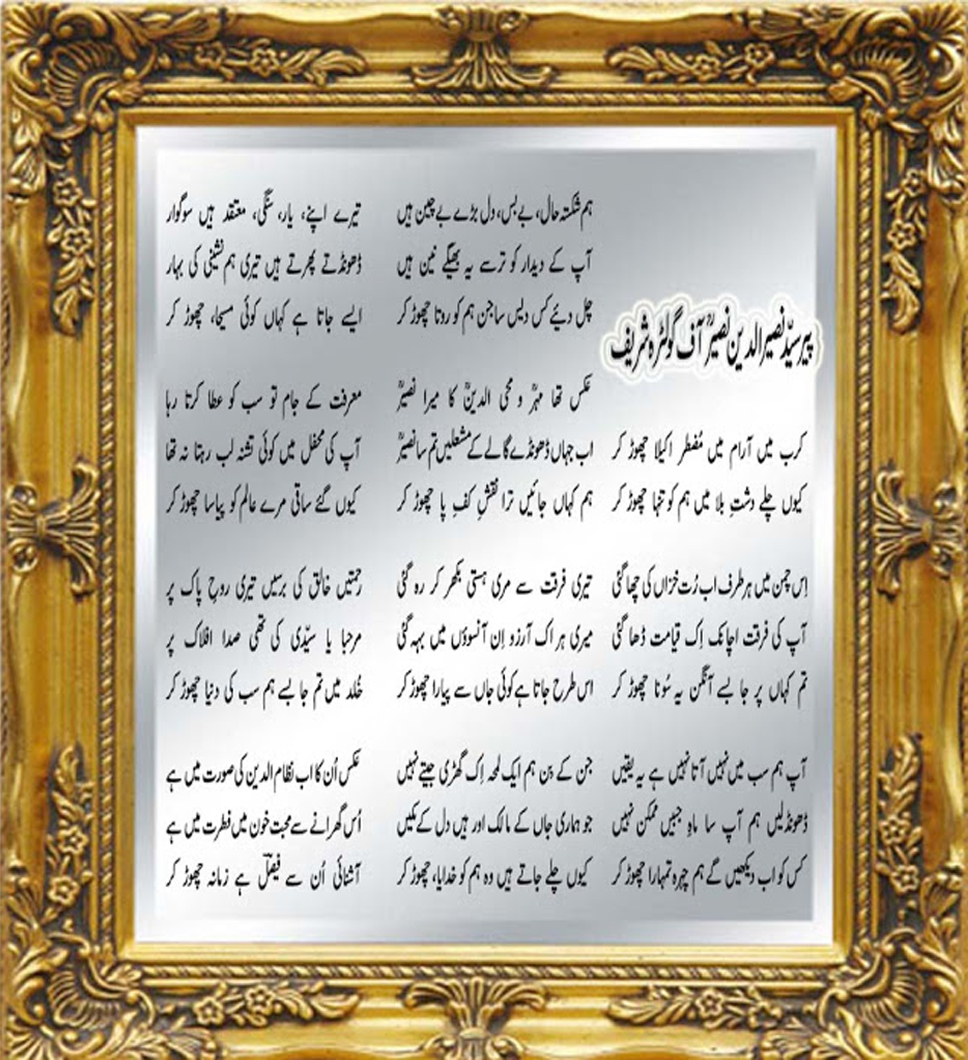 پیر سیّد نصیر الدین نصیرؒ آف گولڑہ شریف
کرب میں آرام میں مُضطر اکیلا چھوڑ کر
کیوں چلے دشتِ بلا میں ہم کو تنہا چھوڑ کر
اِس چمن میں ہر طرف اب رُت خزاں کی چھا گئی
آپ کی فرقت اچانک اِک قیامت ڈھا گئی
تم کہاں پر جا بسے آنگن یہ سُونا چھوڑ کر
آپ ہم سب میں نہیں آتا نہیں ہے یہ یقیں
ڈھونڈ لیں ہم آپ سا ماہِ جبیں ممکن نہیں
کس کو اب دیکھیں گے ہم چہرہ تمہارا چھوڑ کر
ہم شکستہ حال، بے بس، دل بڑے بے چین ہیں
آپ کے دیدار کو ترسے یہ بھیگے نین ہیں
چل دیئے کس دیس ساجن ہم کو روتا چھوڑ کر
عکس تھا مہرؒ و محی الدینؒ کا میرا نصیرؒ
اب جہاں ڈھونڈے گا لے کے مشعلیں تم سا نصیرؒ
ہم کہاں جائیں ترا نقشِ کفِ پا چھوڑ کر
تیری فرقت سے مری ہستی بکھر کر رہ گئی
میری ہر اک آرزو اِن آنسوؤں میں بہہ گئی
اس طرح جاتا ہے کوئی جاں سے پیارا چھوڑ کر
جن کے بِن ہم ایک لمحہ اِک گھڑی جیتے نہیں
جو ہماری جاں کے مالک اور ہیں دل کے مکیں
کیوں چلے جاتے ہیں وہ ہم کو خدایا، چھوڑ کر
تیرے اپنے، یار، سنگی، معتقد ہیں سوگوار
ڈھونڈتے پھرتے ہیں تیری ہم نشینی کی بہار
ایسے جاتا ہے کہاں کوئی مسیحا، چھوڑ کر
معرفت کے جام تو سب کو عطا کرتا رہا
آپ کی محفل میں کوئی تشنہ لب رہتا نہ تھا
کیوں گئے ساقی مرے عالم کو پیاسا چھوڑ کر
رحمتیں خالق کی برسیں تیری روحِ پاک پر
مرحبا یا سیّدی کی تھی صدا افلاک پر
خُلد میں تم جا بسے ہم سب کی دنیا چھوڑ کر
عکس اُن کا اب نظام الدین کی صورت میں ہے
اُس گھرانے سے محبت خون میں فطرت میں ہے
آشنائی اُن سے فیضلؔ ہے زمانہ چھوڑ کر